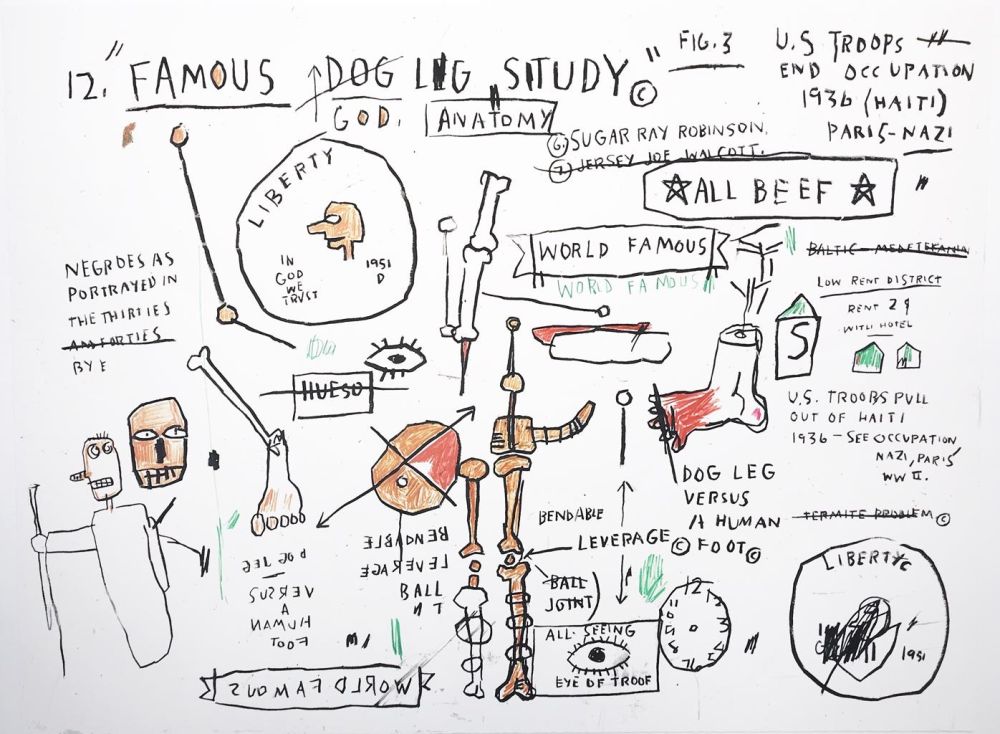 12. "FAMOUS DOG LEG STUDY" ©
GOD.
ANATOMY
FIG. 3
U.S TROOPS
END OCCUPATION
1936 (HAITI)
PARIS-NAZI
6. SUGAR RAY ROBINSON.
7. JERSEY JOE WALCOTT.
☆ALL BEEF☆
LIBERTY
IN
GOD
WE
TRVST
1951
D
WORLD FAMOUS
WORLD FAMOUS
LOW RENT DISTRICT
RENT 2
HOTEL
S
NEGROES AS
PORTRAYED IN
THE THIRTIES
AND FORTIES
BY E
HUESO
U.S. TROOBS PULL
OUT OF HAITI
1936 - SEE OCCUPATION
NAZI, PARIS
WW II.
DOG LEG
VERSUS
A HUMAN
FOOT ©
TERMITE PROBLEM ©
BENDABLE
LEVERAGE ©
BALL
JOINT)
BENDABLE
LEVERAGE
BALL
N T
DOG LEG
VERSUS
A
HUMAN
FOOT
ALL-SEEING
EYE OF TROOF
12
WORLD FAMOUS
LIBERTY
1951